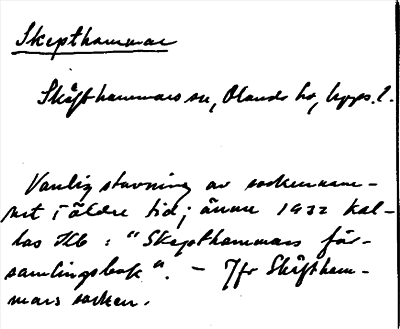 Skepthammar
Skäfthammars sn, Olands hd, Upps. l.
Vanlig stavning av sockennam-
net i äldre tid; ännu 1932 kal-
las KB: "Skepthammars för-
samlingsbok". - Jfr Skäftham-
mars socken.